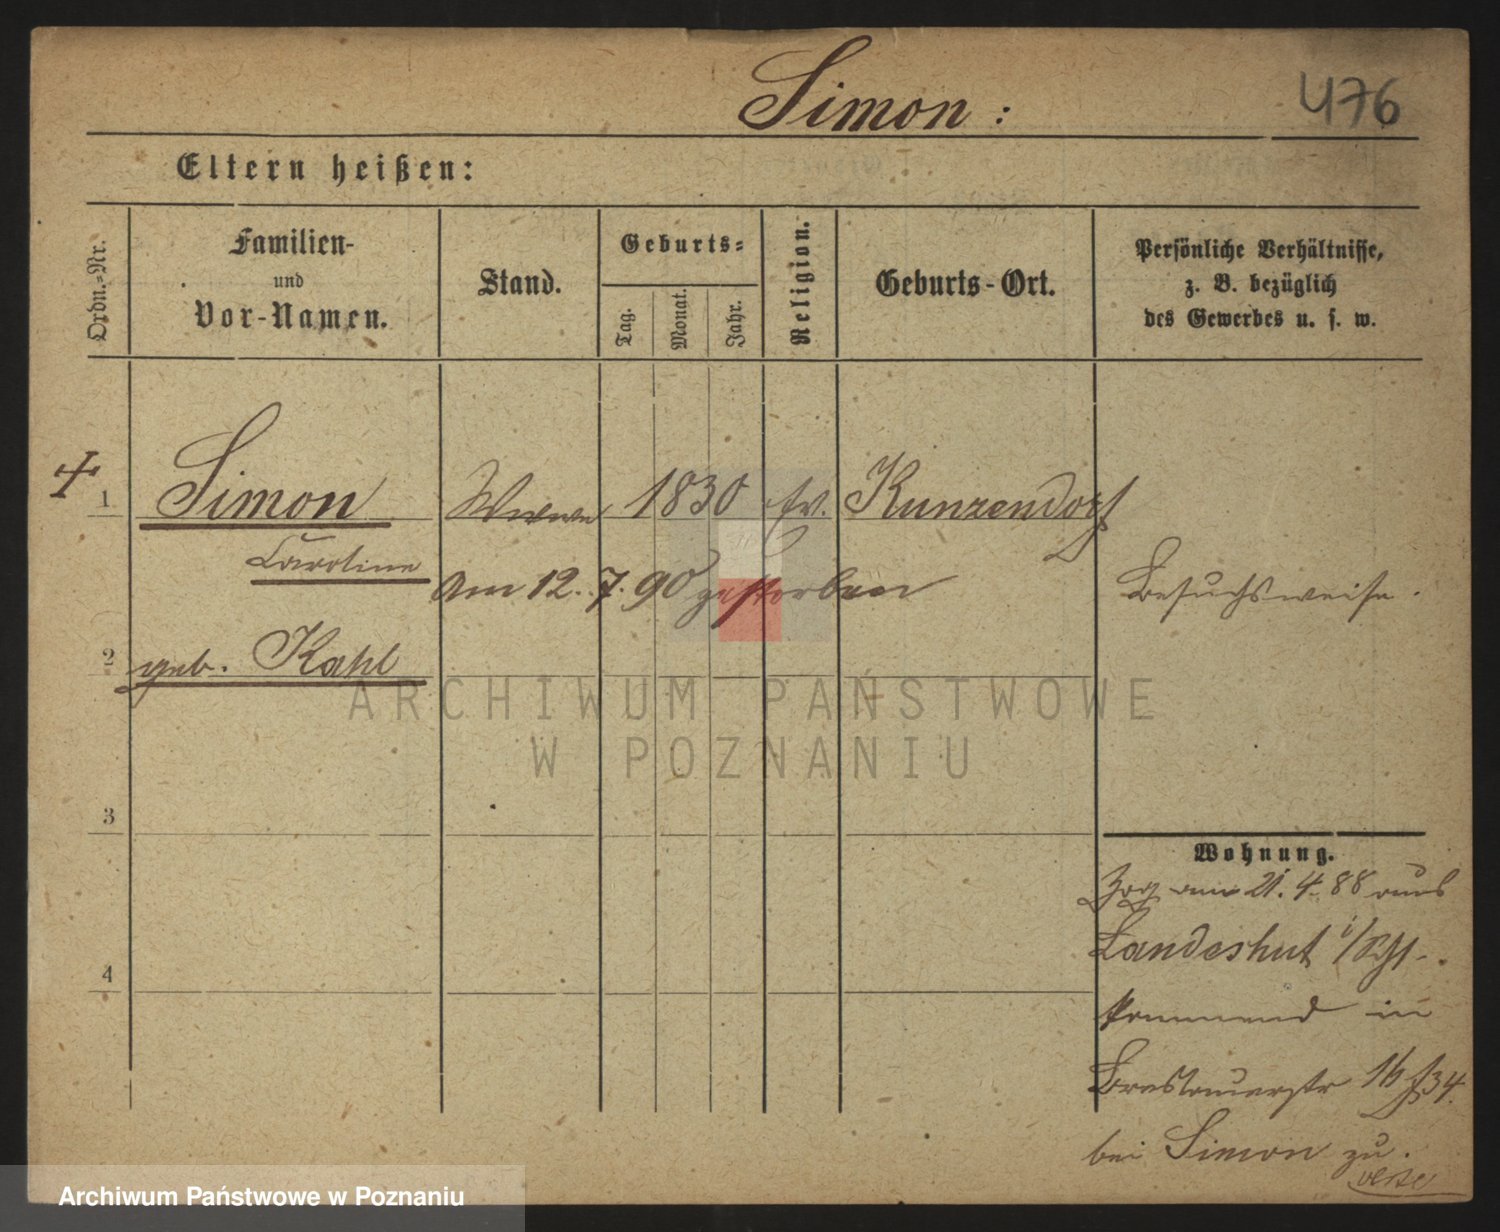 Simon :
476
Eltern heißen:
Ordn.-Nr.
Familien-
und
Vor-Namen.
Stand.
Geburts-
Tag.
Monat.
Jahr.
Religion.
Geburts-Ort.
Persönliche Verhältnisse,
z. B. bezüglich
des Gewerbes u. s. w.
1
Simon
Wwe
1830
ev.
Kunzendorf
Caroline
am 12.7.90 gestorben
Besuchsweise.
2
geb. Kahl
ARCHIWUM PAŃSTWOWE
W POZNANIU
3
Wohnung.
Zog am 21.4.88 aus
Landeshut i/Schl.
4
kommend in
Breslauerstr 16 34.
bei Simon zu.
Archiwum Państwowe w Poznaniu